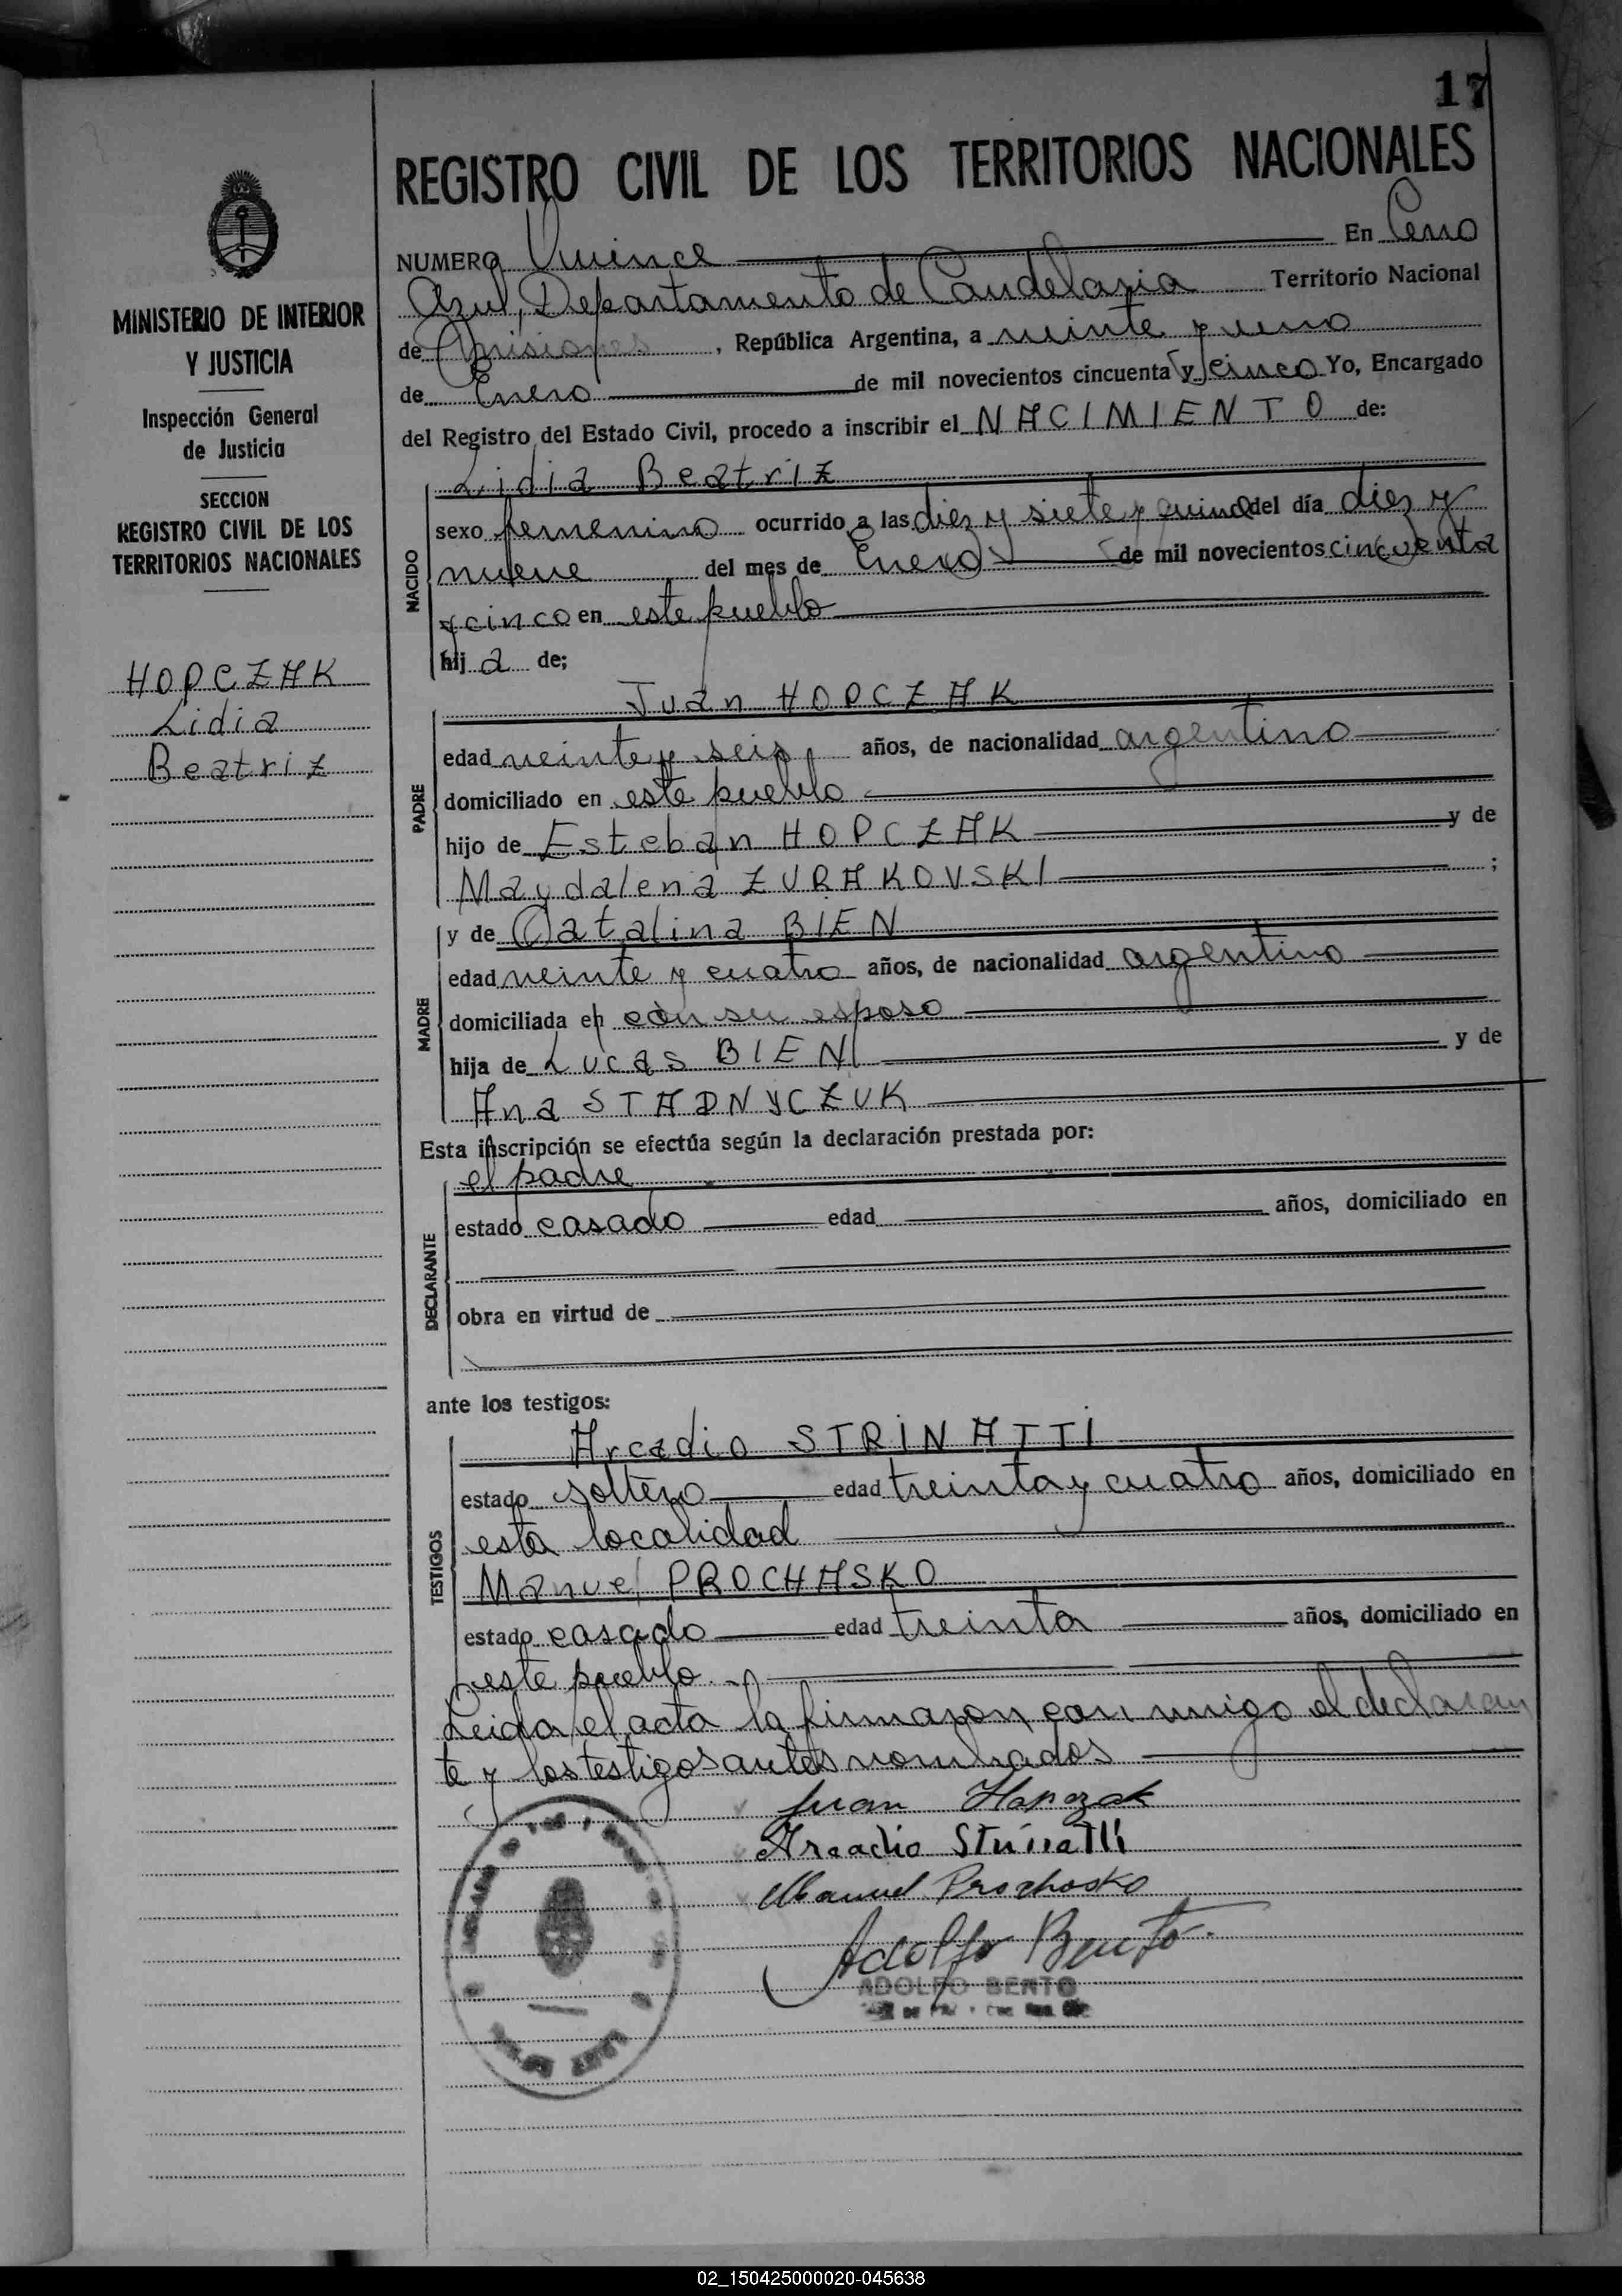 17
REGISTRO CIVIL DE LOS TERRITORIOS NACIONALES
MINISTERIO DE INTERIOR
Y JUSTICIA
Inspección General
de Justicia
SECCION
REGISTRO CIVIL DE LOS
TERRITORIOS NACIONALES
HOPCZAK
Lidia
Beatriz
NUMERO Quince En Cerro
Azul, Departamento de Candelaria Territorio Nacional
de Misiones, República Argentina, a veinte y uno
de Enero de mil novecientos cincuenta y cinco Yo, Encargado
del Registro del Estado Civil, procedo a inscribir el NACIMIENTO de:
NACIDO
Lidia Beatriz
sexo femenino ocurrido a las diez y siete y quince del día diez y
nueve del mes de Enero de mil novecientos cincuenta
y cinco en este pueblo
hija de;
PADRE
Juan HOPCZAK
edad veinte y seis años, de nacionalidad argentino
domiciliado en este pueblo
hijo de Esteban HOPCZAK y de
Magdalena ZURAKOVSKI ;
MADRE
y de Catalina BIEN
edad veinte y cuatro años, de nacionalidad argentina
domiciliada en con su esposo
hija de Lucas BIEN y de
Ana STADNYCZUK
Esta inscripción se efectúa según la declaración prestada por:
DECLARANTE
el padre
estado casado edad años, domiciliado en
obra en virtud de
ante los testigos:
TESTIGOS
Arcadio STRINATTI
estado soltero edad treinta y cuatro años, domiciliado en
esta localidad
Manuel PROCHASKO
estado casado edad treinta años, domiciliado en
este pueblo.
Leida el acta la firmaron con migo el declaran
te y los testigos antes nombrados
Juan Hopczak
Arcadio Strinatti
Manuel Prochasko
Adolfo Bento
ADOLFO BENTO
02_150425000020-045638